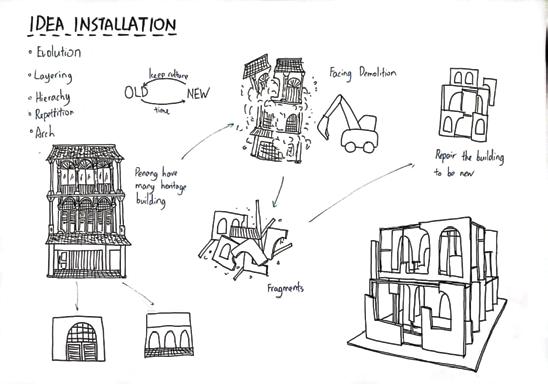 IDEA INSTALLATION
Evolution
Layering
Hierachy
Repetition
Arch
keep culture
OLD NEW
time
Facing Demolition
Penang have
many heritage
building
Fragments
Repair the building
to be new